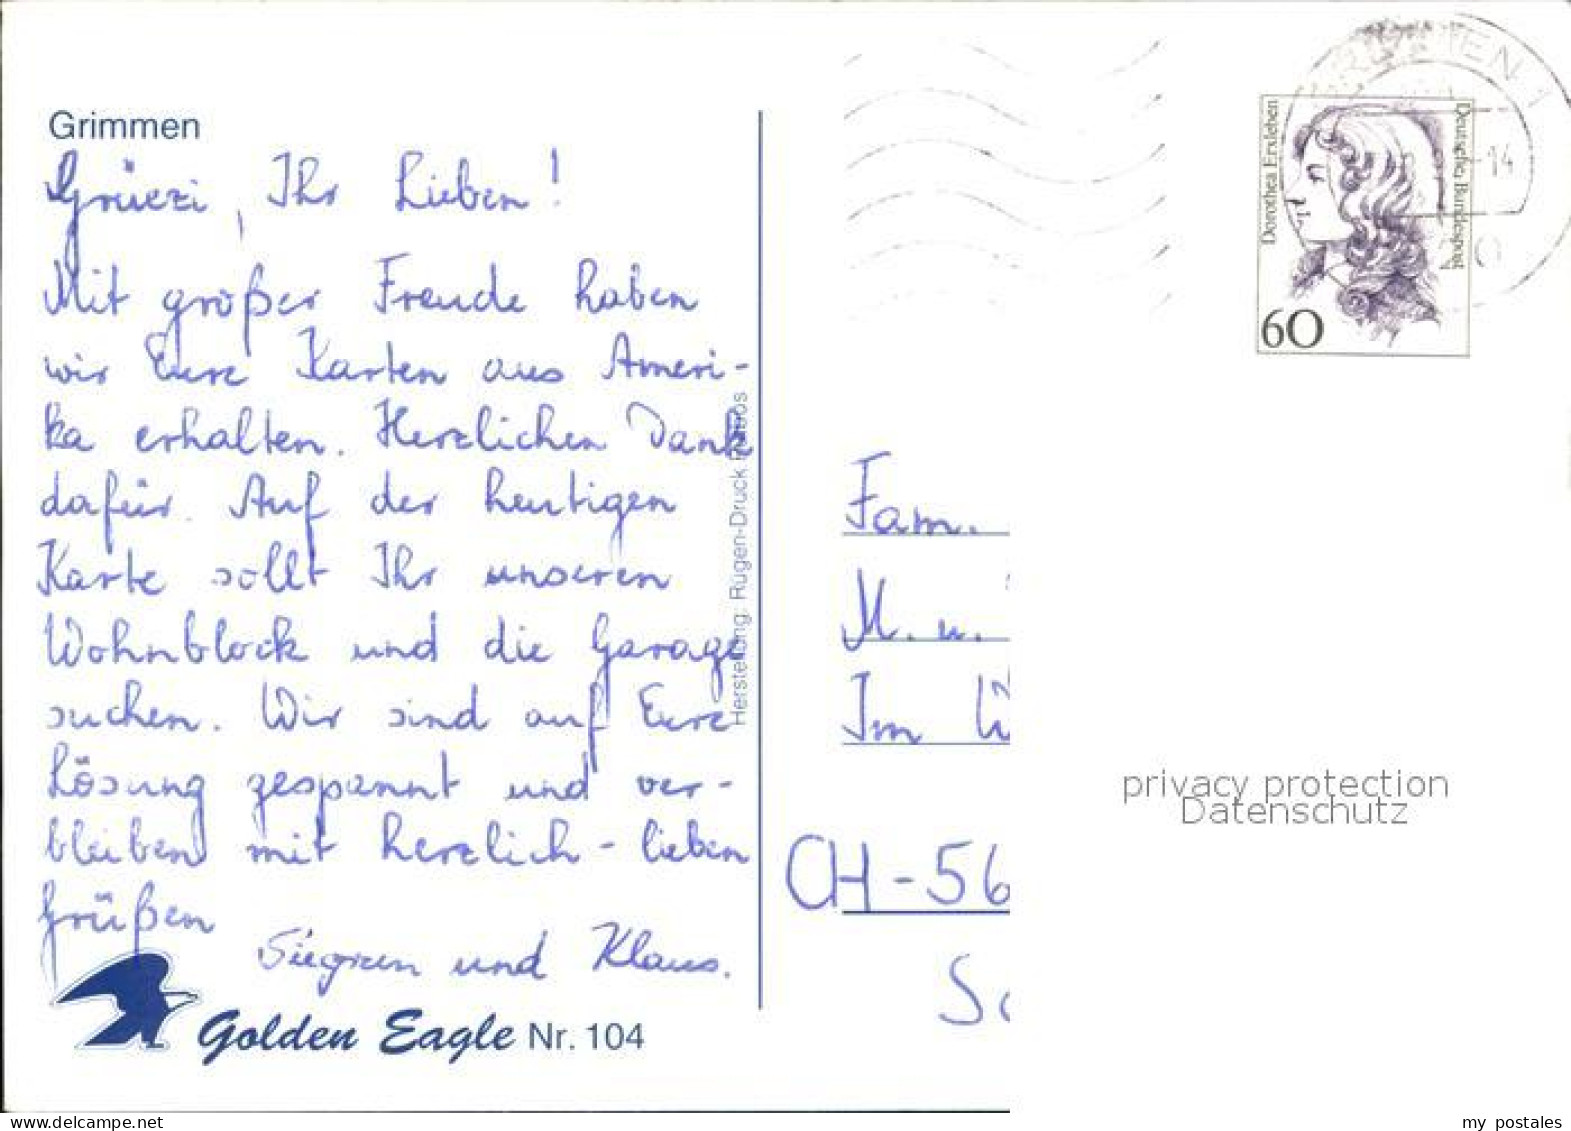 Grimmen
Grüezi, Ihr Lieben!
Mit großer Freude haben
wir Eure Karten aus Ameri-
ka erhalten. Herzlichen Dank
dafür. Auf der heutigen
Karte sollt Ihr unseren
Wohnblock und die Garage
suchen. Wir sind auf Eure
Lösung gespannt und ver-
bleiben mit herzlich-lieben
Grüßen
Siegrun und Klaus.
Golden Eagle Nr. 104
Herstellung: Rügen-Druck
Dorothea Erxleben
Deutsche Bundespost
60
-14
Fam.
M. u.
Im
CH-56
privacy protection
Datenschutz
delcampe.net
my_postales